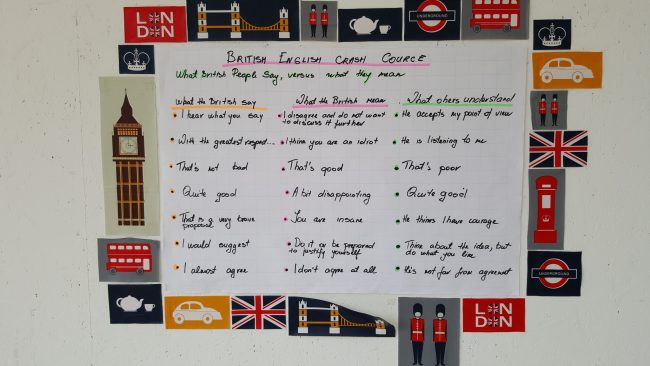 LONDON
UNDERGROUND
BRITISH ENGLISH CRASH COURCE
What British People Say, versus what they mean
What the British say
What the British mean
What others understand
I hear what you say
I disagree and do not want
to discuss it further
He accepts my point of view
With the greatest respect...
I think you are an idiot
He is listening to me
That's not bad
That's good
That's poor
Quite good
A bit disappointing
Quite good!
That is a very brave
proposal
You are insane
He thinks I have courage
I would suggest
Do it or be prepared
to justify yourself
Think about the idea, but
do what you like
I almost agree
I don't agree at all
He's not far from agreement
UNDERGROUND
LONDON